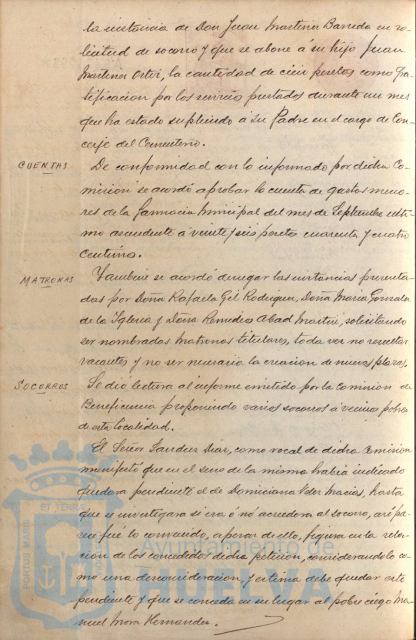 la instancia de Don Juan Martinez Barreda en so-
licitud de socorro y que se abone á su hijo Juan
Martinez Ortiz, la cantidad de cien pesetas como gra-
tificacion por los servicios prestados durante un mes
que ha estado supliendo a su Padre en el cargo de Con-
serje del Cementerio.
CUENTAS
De conformidad con lo informado por dicha Co-
mision se acordó aprobar la cuenta de gastos meno-
res de la farmacia Municipal del mes de Septiembre últi-
mo ascendente á veinte y seis pesetas cuarenta y cuatro
centimos.
MATRONAS
Tambien se acordó denegar las instancias presenta-
das por Doña Rafaela Gil Rodriguez, Doña Maria Gonzalez
de la Iglesia y Doña Remedios Abad Martin, solicitando
ser nombradas Matronas titulares, toda vez no resultar
vacantes y no ser necesaria la creacion de nuevas plazas.
SOCORROS
Se dió lectura al informe emitido por la Comision de
Beneficencia proponiendo varios socorros á vecinos pobres
de esta localidad.
El Señor Sanchez Diaz, como vocal de dicha Comision
manifestó que en el seno de la misma habia indicado
quedara pendiente el de Domiciana Macias, hasta
que se investigara si era ó no acreedora al socorro, asi pa-
rece fué lo convenido, a pesar de ello, figura en la rela-
cion de los concedidos dicha peticion, considerandolo co-
mo una desconsideracion, y estima debe quedar este
pendiente y que se conceda en su lugar al pobre ciego Ma-
nuel Mora Hernandez.
Ayuntamiento de
HUELVA